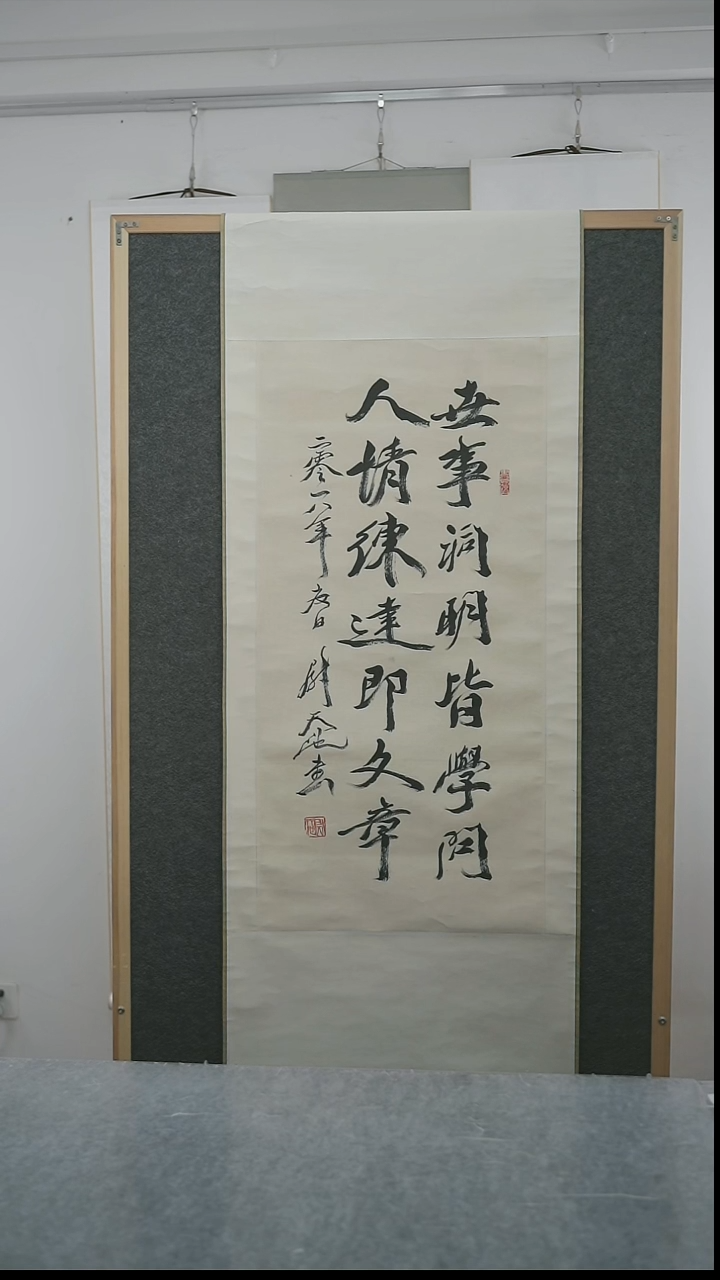 世事洞明皆學問
人情練達即文章
二零一八年春日尉天池書